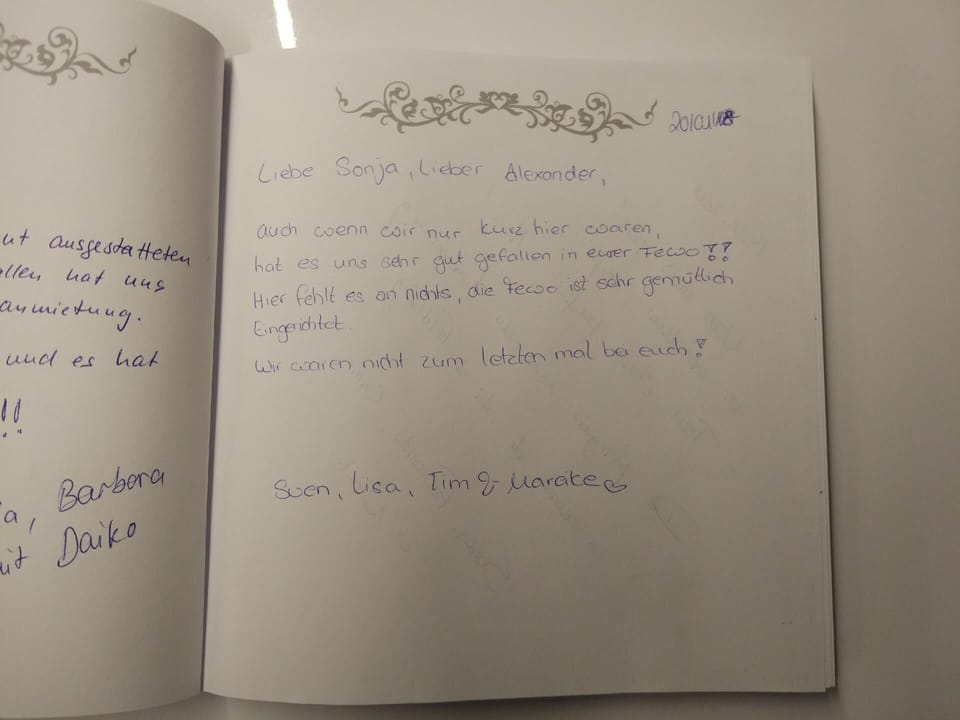 ausgestatteten
hat uns
anmietung.
und es hat
!!
Barbara
Daiko
Liebe Sonja, Lieber Alexander,
auch wenn wir nur kurz hier waren,
hat es uns sehr gut gefallen in eurer Fewo!!
Hier fehlt es an nichts, die Fewo ist sehr gemütlich
Eingerichtet.
Wir waren nicht zum letzten mal bei euch!
Sven, Lisa, Tim & Mareike